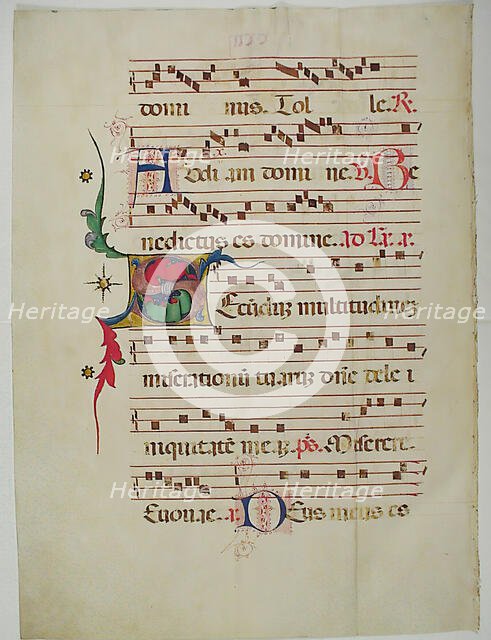 domi nus. Tol le. R.
Audi am domi ne. V. Be
nedictus es domine. ad
Secundu multitudinez
miserationu tuarum dne dele i
niquitate me ps. Miserere
Euouae. Deus meus es
Heritage Heritage Heritage
Heritage Heritage Heritage
Heritage Heritage Heritage